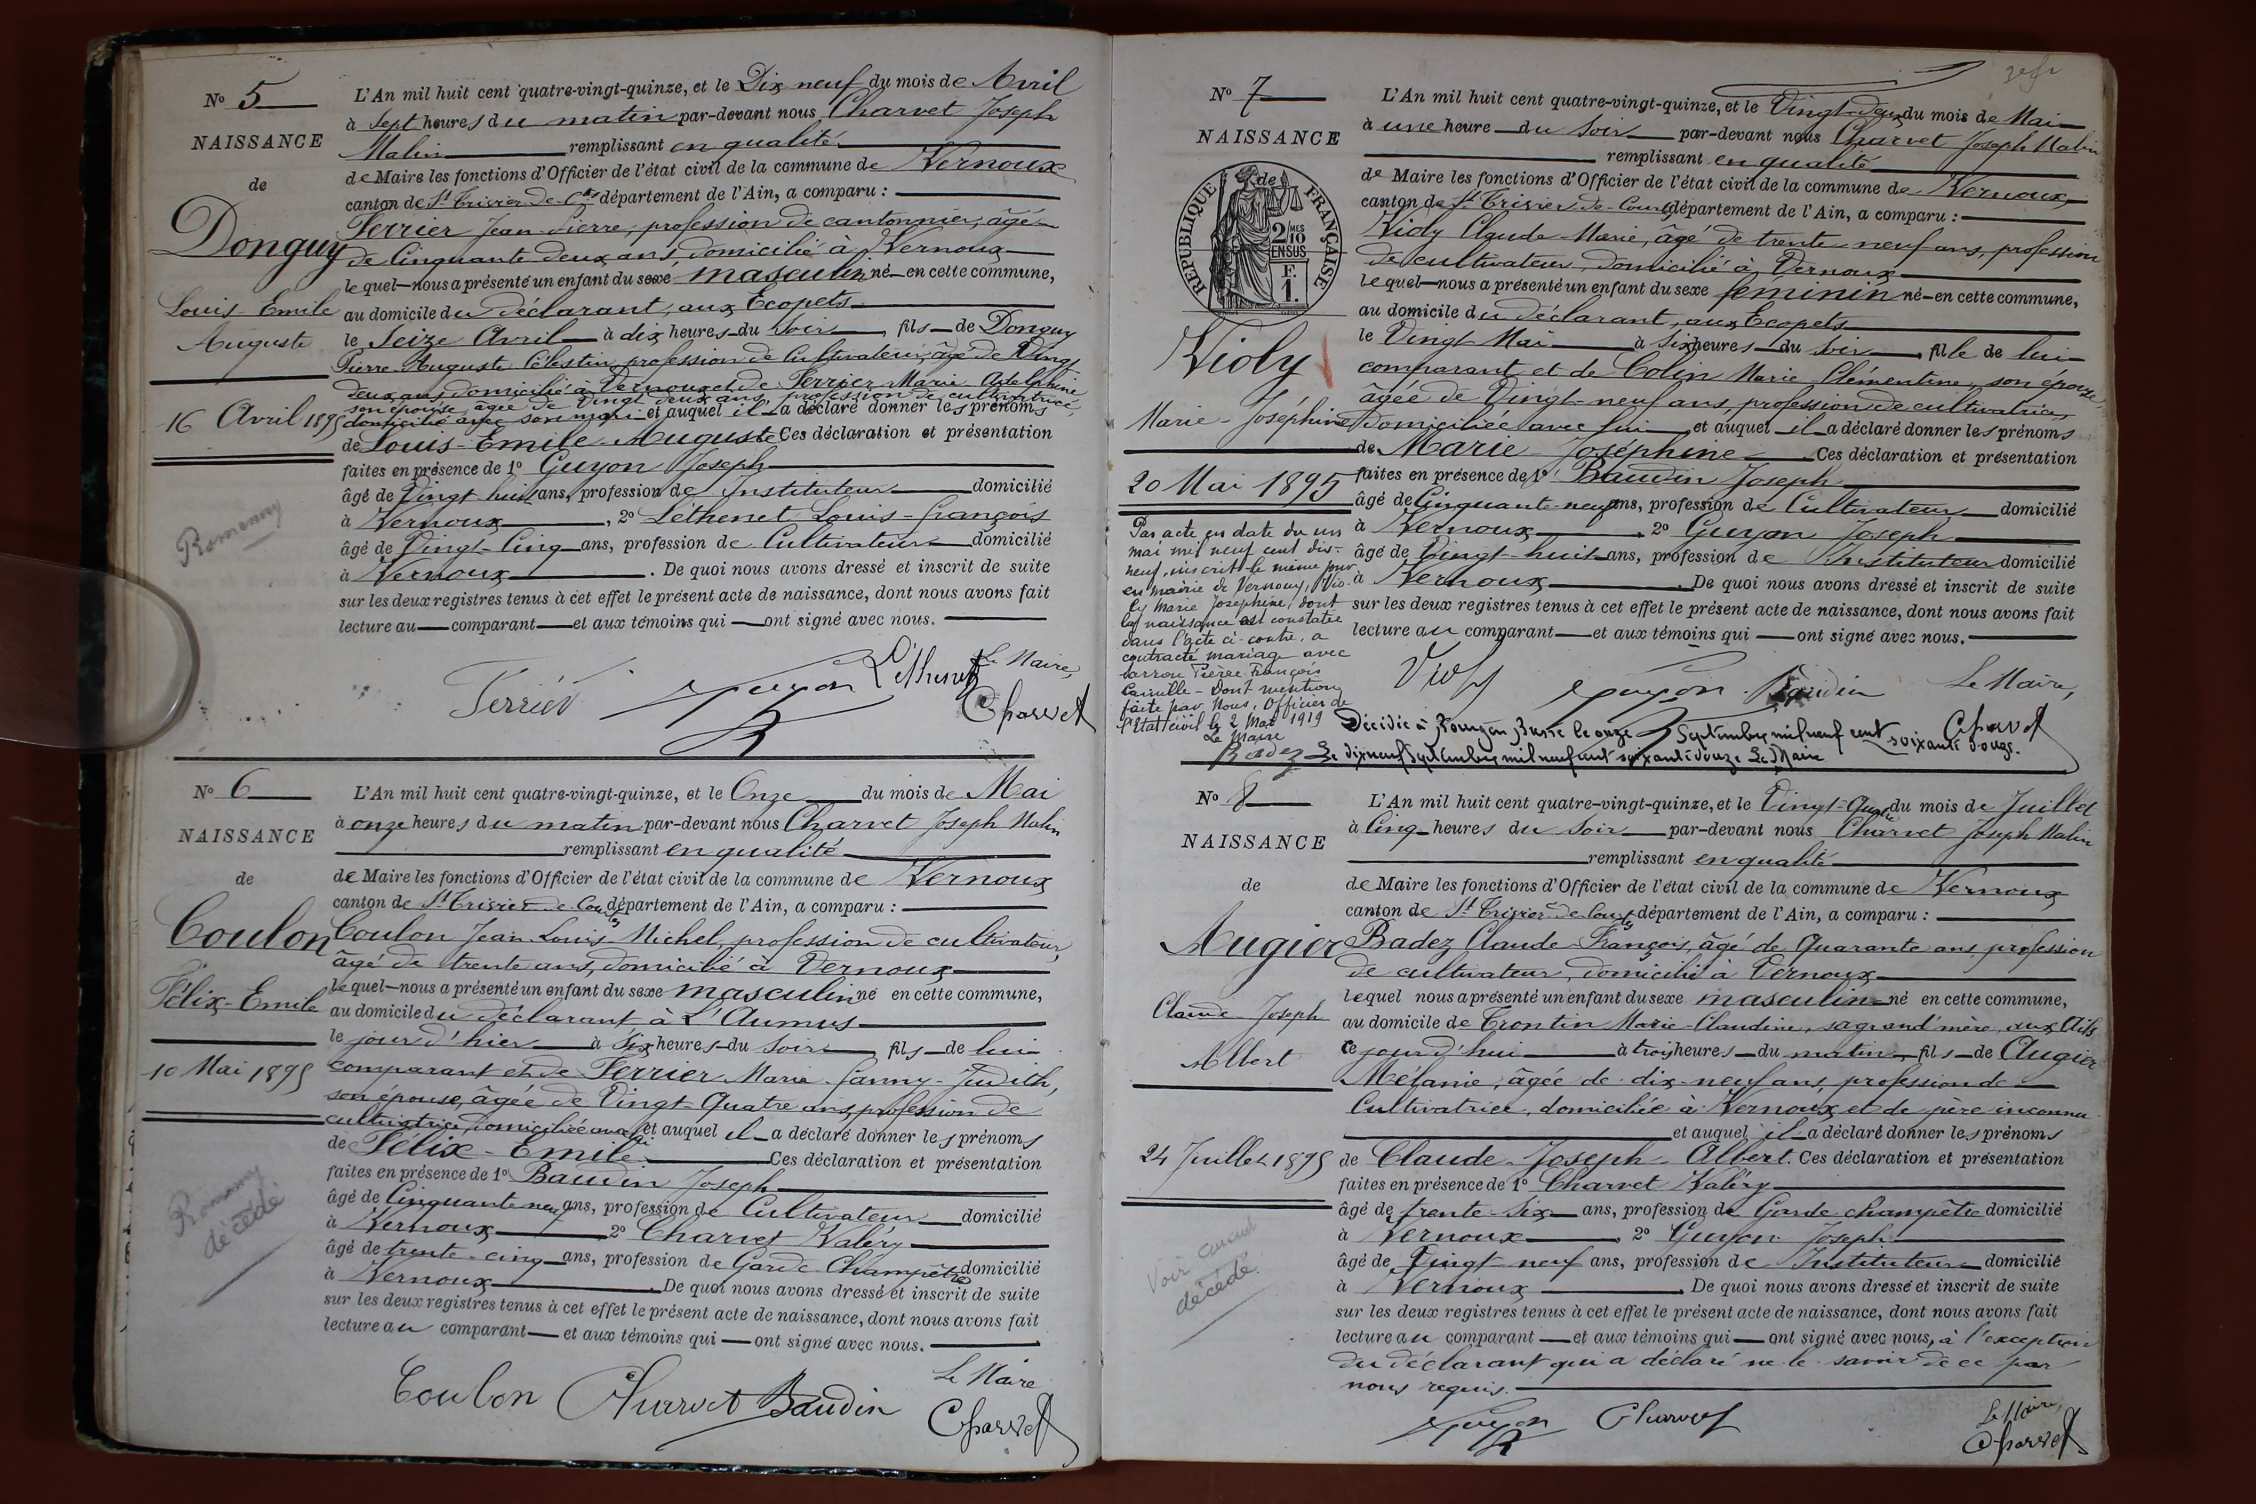 N° 5
NAISSANCE
de
Donguy
Louis-Emile
Auguste
16 Avril 1895
Romenay
L'An mil huit cent quatre-vingt-quinze, et le Dix neuf du mois de Avril
à Sept heures du matin par-devant nous Charvet Joseph
Malin remplissant en qualité
de Maire les fonctions d'Officier de l'état civil de la commune de Vernoux
canton de St Trivier de Ctes département de l'Ain, a comparu :
Ferrier Jean-Pierre, profession de cantonnier, âgé
de Cinquante deux ans, domicilié à Vernoux
lequel nous a présenté un enfant du sexe masculin né en cette commune,
au domicile du déclarant, aux Ecopets
le Seize Avril à dix heures du Soir, fils de Donguy
Pierre-Auguste Célestin, profession de Cultivateur, âgé de Vingt
deux ans, domicilié à Vernoux et de Ferrier Marie-Adelphine
son épouse, âgée de Vingt deux ans, profession de cultivatrice,
domiciliée avec son mari et auquel il a déclaré donner les prénoms
de Louis-Emile-Auguste Ces déclaration et présentation
faites en présence de 1° Guyon Joseph
âgé de Vingt huit ans, profession de Instituteur domicilié
à Vernoux, 2° Léthenet Louis-François
âgé de Vingt-Cinq ans, profession de Cultivateur domicilié
à Vernoux. De quoi nous avons dressé et inscrit de suite
sur les deux registres tenus à cet effet le présent acte de naissance, dont nous avons fait
lecture au comparant et aux témoins qui ont signé avec nous.
Ferrier Guyon Léthenet Le Maire,
Charvet
N° 6
NAISSANCE
de
Coulon
Félix-Emile
10 Mai 1895
Romenay
décédé
L'An mil huit cent quatre-vingt-quinze, et le Onze du mois de Mai
à onze heures du matin par-devant nous Charvet Joseph Malin
remplissant en qualité
de Maire les fonctions d'Officier de l'état civil de la commune de Vernoux
canton de St Trivier de Courtes département de l'Ain, a comparu :
Coulon Jean-Louis-Michel, profession de cultivateur,
âgé de trente ans, domicilié à Vernoux
lequel nous a présenté un enfant du sexe masculin né en cette commune,
au domicile du déclarant à L'Aumus
le jour d'hier à Six heures du Soir, fils de lui
comparant et de Ferrier Marie-Fanny-Judith,
son épouse, âgée de Vingt-Quatre ans, profession de
cultivatrice, domiciliée avec lui et auquel il a déclaré donner les prénoms
de Félix-Emile Ces déclaration et présentation
faites en présence de 1° Baudin Joseph
âgé de Cinquante neuf ans, profession de Cultivateur domicilié
à Vernoux 2° Charvet Valéry
âgé de trente-cinq ans, profession de Garde Champêtre domicilié
à Vernoux. De quoi nous avons dressé et inscrit de suite
sur les deux registres tenus à cet effet le présent acte de naissance, dont nous avons fait
lecture au comparant et aux témoins qui ont signé avec nous.
Coulon Charvet Baudin Le Maire
Charvet
N° 7
NAISSANCE
de
RÉPUBLIQUE FRANÇAISE
2/10 MES
EN SUS
F.
1.
Violy
Marie-Joséphine
20 Mai 1895
Par acte en date du un
mai mil neuf cent dix-
neuf, inscrit le même jour
en mairie de Vernoux, Vio-
ly Marie Joséphine, dont
la naissance est constatée
dans l'acte ci-contre, a
contracté mariage avec
Carron Pierre François
Camille - Dont mention
faite par Nous, Officier de
l'Etat civil le 2 Mai 1919
Le Maire
Badez
L'An mil huit cent quatre-vingt-quinze, et le Vingt-deux du mois de Mai
à une heure du Soir par-devant nous Charvet Joseph Malin
remplissant en qualité
de Maire les fonctions d'Officier de l'état civil de la commune de Vernoux
canton de St Trivier-de-Courtes département de l'Ain, a comparu :
Violy Claude-Marie, âgé de trente-neuf ans, profession
de cultivateur, domicilié à Vernoux
lequel nous a présenté un enfant du sexe féminin né en cette commune,
au domicile du déclarant, aux Ecopets
le Vingt Mai à Six heures du Soir, fille de lui
comparant et de Colin Marie Clémentine, son épouse,
âgée de Vingt-neuf ans, profession de cultivatrice,
domiciliée avec lui et auquel il a déclaré donner les prénoms
de Marie-Joséphine Ces déclaration et présentation
faites en présence de 1° Baudin Joseph
âgé de Cinquante-neuf ans, profession de Cultivateur domicilié
à Vernoux, 2° Guyon Joseph
âgé de Vingt-huit ans, profession de Instituteur domicilié
à Vernoux. De quoi nous avons dressé et inscrit de suite
sur les deux registres tenus à cet effet le présent acte de naissance, dont nous avons fait
lecture au comparant et aux témoins qui ont signé avec nous.
Violy Guyon Baudin Le Maire,
Charvet
Décédée à Bourg en Bresse le onze Septembre mil neuf cent soixante douze.
Le dix neuf Septembre mil neuf cent soixante douze Le Maire
N° 8
NAISSANCE
de
Augier
Claude-Joseph
Albert
24 Juillet 1895
Voir
décédé
L'An mil huit cent quatre-vingt-quinze, et le Vingt-Quatre du mois de Juillet
à Cinq heures du Soir par-devant nous Charvet Joseph Malin
remplissant en qualité
de Maire les fonctions d'Officier de l'état civil de la commune de Vernoux
canton de St Trivier de Courtes département de l'Ain, a comparu :
Badez Claude-François, âgé de Quarante ans, profession
de cultivateur, domicilié à Vernoux
lequel nous a présenté un enfant du sexe masculin né en cette commune,
au domicile de Trontin Marie-Claudine, sa grand'mère, aux
ce jourd'hui à trois heures du matin, fils de Augier
Mélanie, âgée de dix-neuf ans, profession de
Cultivatrice, domiciliée à Vernoux et de père inconnu
et auquel il a déclaré donner les prénoms
de Claude-Joseph-Albert. Ces déclaration et présentation
faites en présence de 1° Charvet Valéry
âgé de trente-six ans, profession de Garde champêtre domicilié
à Vernoux, 2° Guyon Joseph
âgé de Vingt neuf ans, profession de Instituteur domicilié
à Vernoux. De quoi nous avons dressé et inscrit de suite
sur les deux registres tenus à cet effet le présent acte de naissance, dont nous avons fait
lecture au comparant et aux témoins qui ont signé avec nous, à l'exception
du déclarant qui a déclaré ne le savoir de ce par
nous requis.
Guyon Charvet Le Maire,
Charvet